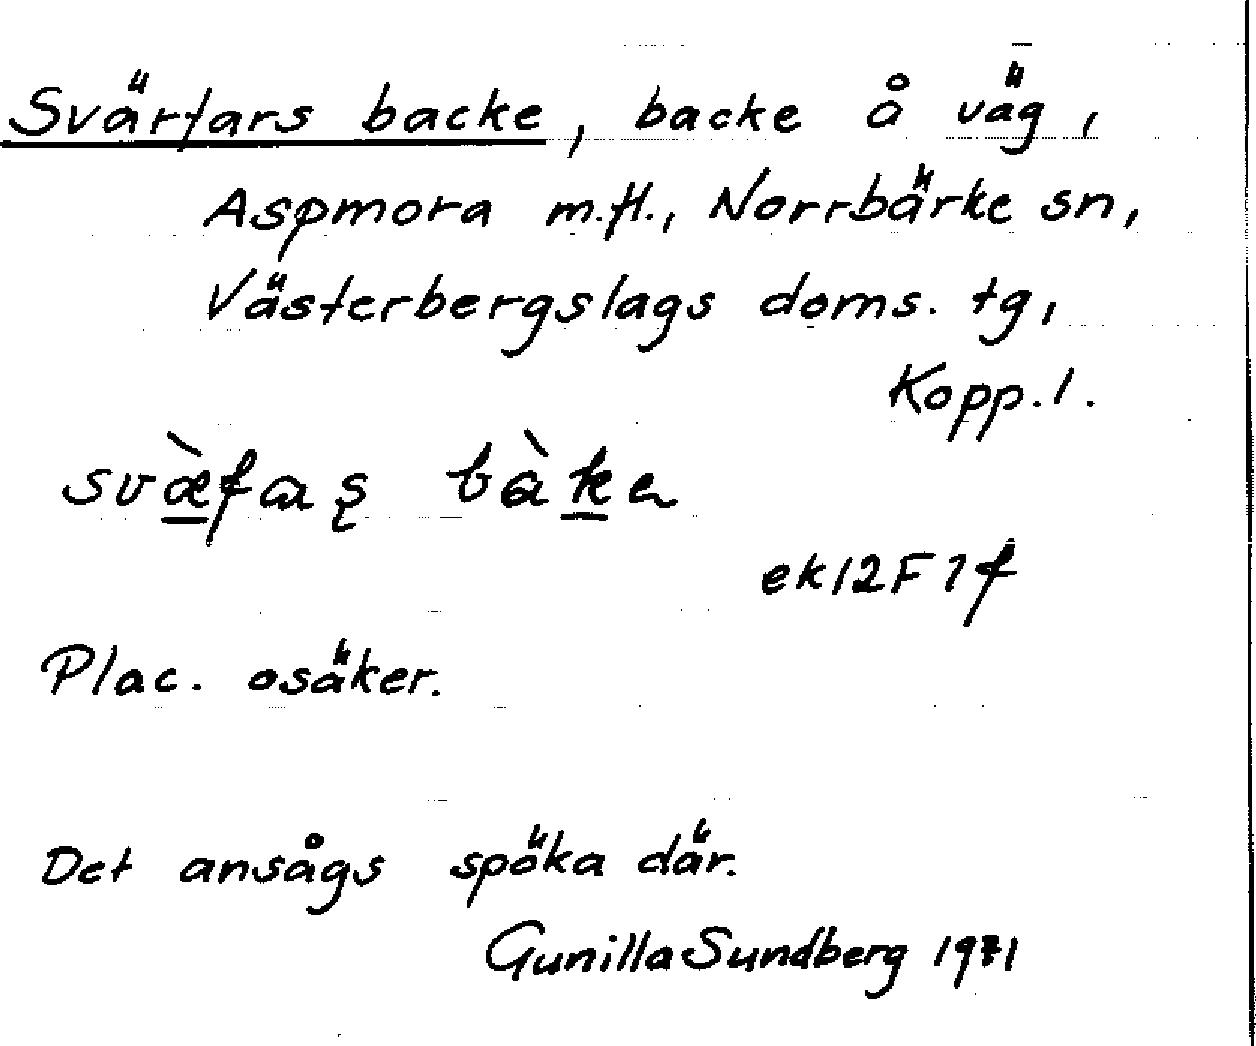 Svärfars backe, backe å väg,
Aspmora m.fl., Norrbärke sn,
Västerbergslags doms. tg,
Kopp.l.
svæ̀faʂ bàkɐ
ek12F7f
Plac. osäker.
Det ansågs spöka där.
Gunilla Sundberg 1971